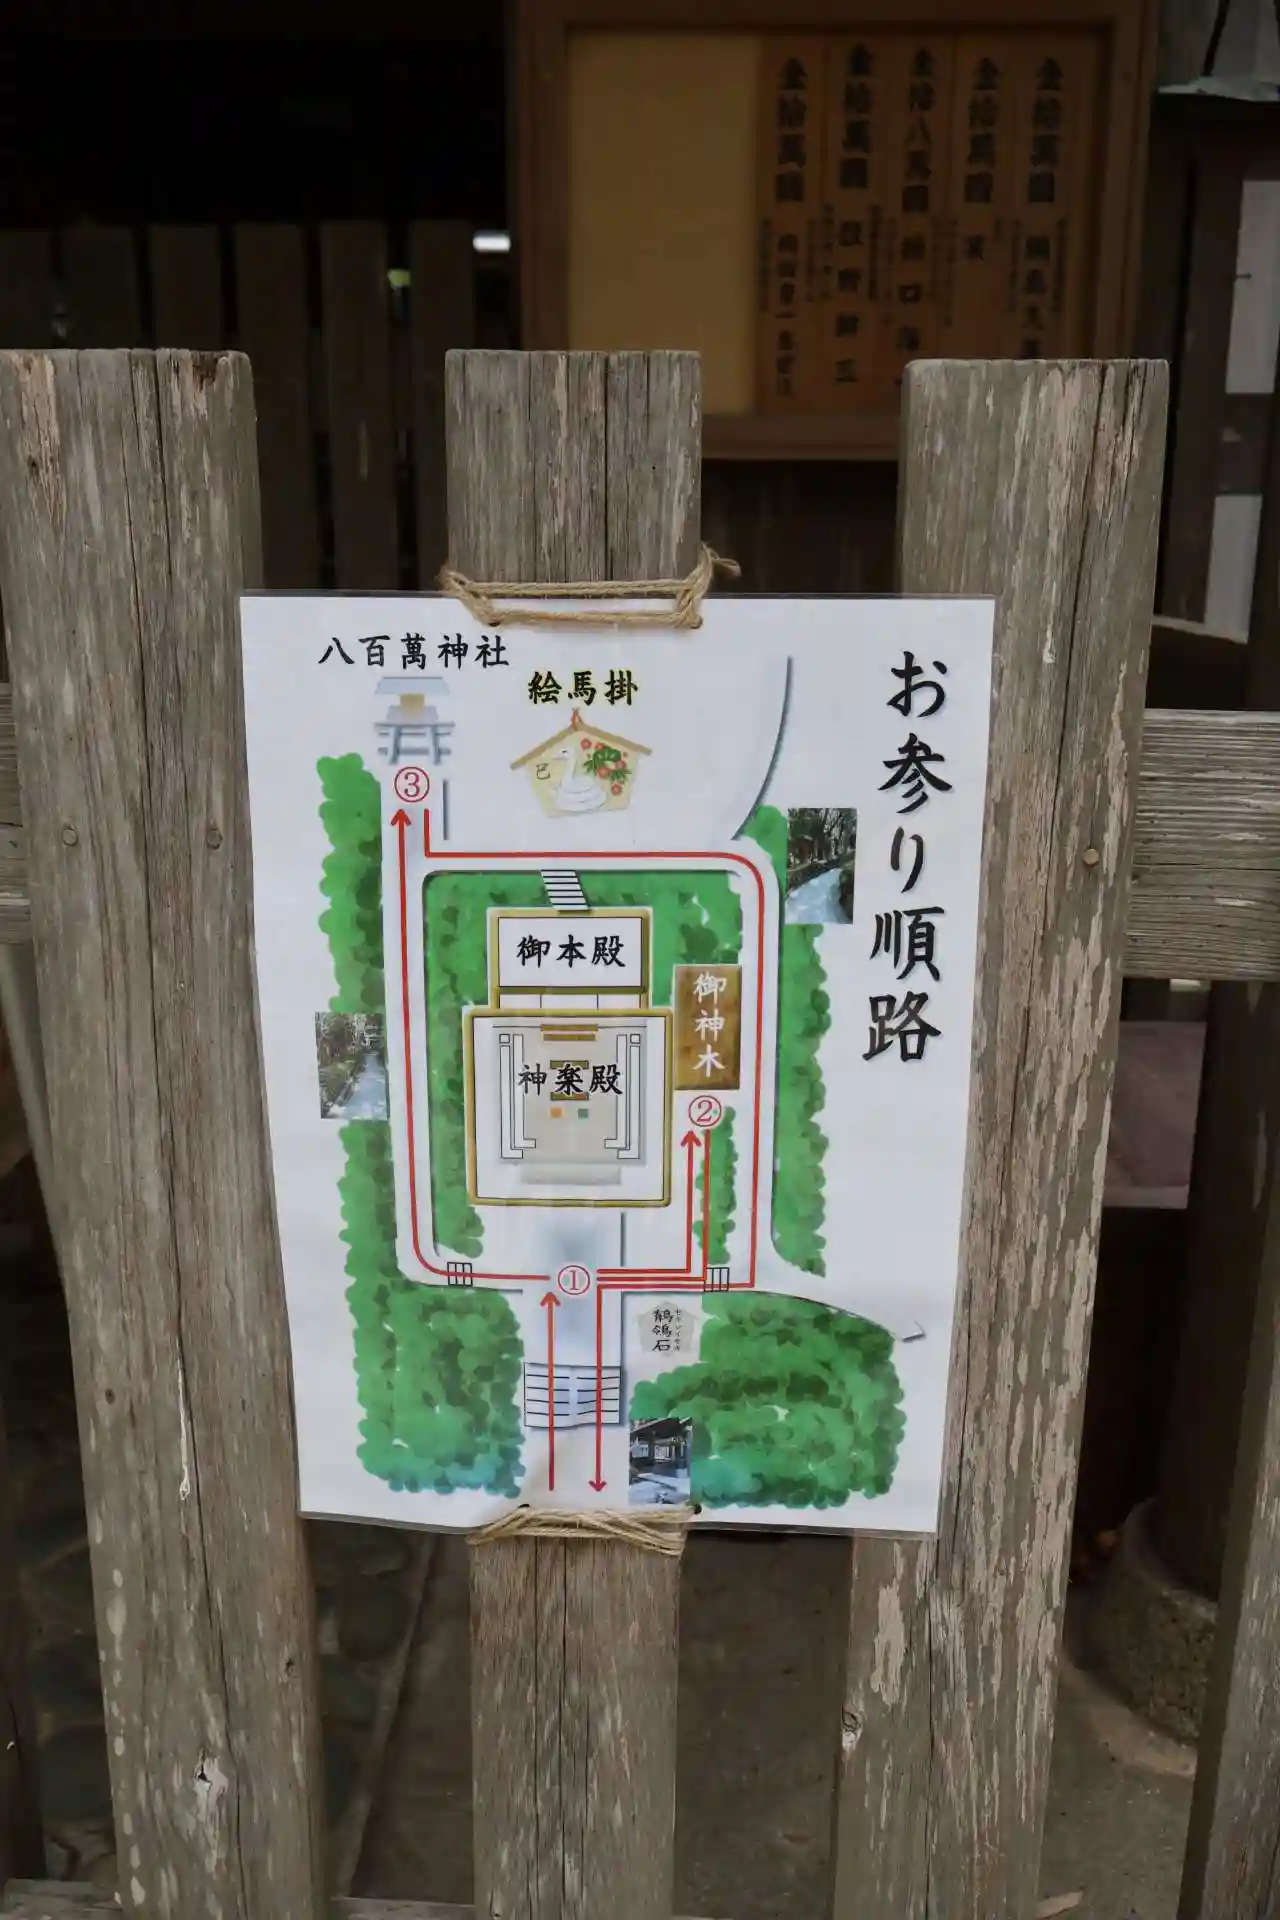 金拾萬圓
金拾萬圓
金拾八萬圓
金拾萬圓
金拾萬圓
お参り順路
八百萬神社
絵馬掛
巳
③
御本殿
御神木
神楽殿
②
①
鶺鴒石
セキレイセキ